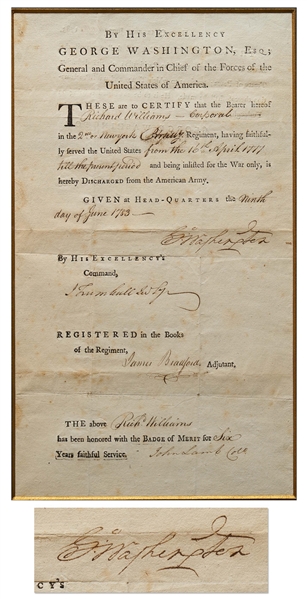 By His Excellency
GEORGE WASHINGTON, Esq;
General and Commander in Chief of the Forces of the
United States of America.
THESE are to CERTIFY that the Bearer hereof
Richard Williams – Corporal
in the 2nd New York Regiment, having faithful-
ly served the United States from the 16th April 1777
till the present period and being inlisted for the War only, is
hereby DISCHARGED from the American Army.
GIVEN at HEAD-QUARTERS the Ninth
day of June 1783
G:Washington
By HIS EXCELLENCY's
Command,
J Trumbull
REGISTERED in the Books
of the Regiment,
James Bradford Adjutant,
THE above Richd Williams
has been honored with the BADGE of MERIT for Six
Years faithful Service. John Lamb Coll
G:Washington
CY's